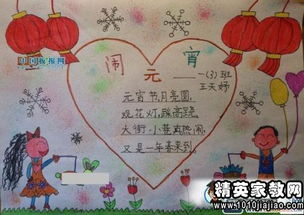 闹元宵
一(3)班
王天妤
元宵节,月亮圆,
观花灯,踩高跷,
大街小巷真热闹,
又是一年春来到。
板报网
精英家教网
www.1010jiajiao.com